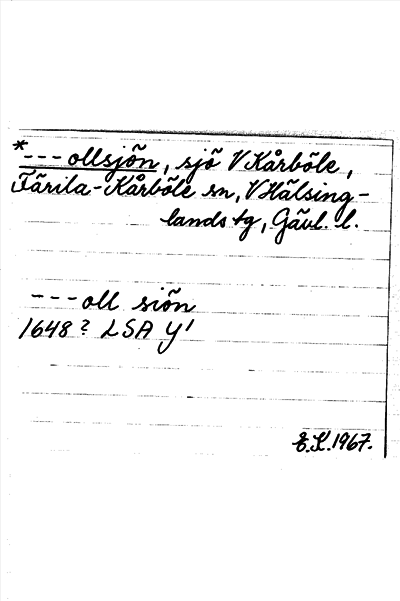 *---ollsjön, sjö V Kårböle,
Färila-Kårböle sn, V Hälsing-
lands tg, Gävl. l.
---oll siön
1648? LSA Y1
E.K. 1967.